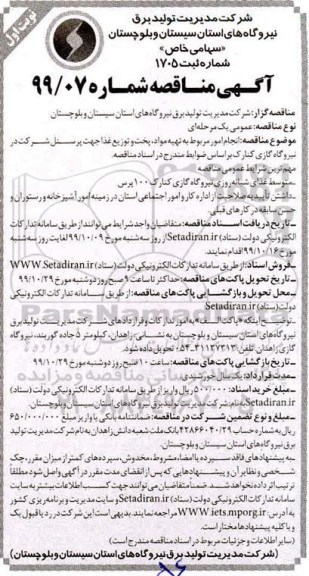 نوبت اول
شرکت مدیریت تولید برق
نیروگاه‌های استان سیستان و بلوچستان
«سهامی خاص»
شماره ثبت ۱۷۰۵
آگهی مناقصه شماره ۹۹/۰۷
مناقصه گزار: شرکت مدیریت تولید برق نیروگاه‌های استان سیستان و بلوچستان
نوع مناقصه: عمومی یک مرحله‌ای
موضوع مناقصه: انجام امور مربوط به تهیه مواد، پخت و توزیع غذا جهت پرسنل شرکت در
نیروگاه گازی کنارک براساس ضوابط مندرج در اسناد مناقصه.
مهم‌ترین شرایط عمومی مناقصه
ـ متوسط غذای شبانه روزی نیروگاه گازی کنارک ۱۰۰ پرس
ـ داشتن تأییدیه صلاحیت از اداره کار و امور اجتماعی استان در زمینه امور آشپزخانه و رستوران و
حسن سابقه در کارهای قبلی
ـ تاریخ دریافت اسناد مناقصه: متقاضیان واجد شرایط می‌توانند از طریق سامانه تدارکات
الکترونیکی دولت (ستاد) Setadiran.ir از روز سه‌شنبه مورخ ۹۹/۱۰/۰۹ لغایت روز سه‌شنبه
مورخ ۹۹/۱۰/۱۶ اقدام نمایند.
ـ فروش اسناد: از طریق سامانه تدارکات الکترونیکی دولت (ستاد) WWW.Setadiran.ir
ـ تاریخ تحویل پاکت‌های مناقصه: حداکثر تا ساعت ۹ صبح روز دوشنبه مورخ ۹۹/۱۰/۲۹
ـ محل تحویل و بازگشایی پاکت‌های مناقصه: از طریق سامانه تدارکات الکترونیکی
دولت (ستاد) Setadiran.ir
ـ توضیح اینکه «پاکت الف» به امور تدارکات و قراردادهای شرکت مدیریت تولید برق
نیروگاه‌های استان سیستان و بلوچستان به نشانی: زاهدان، کیلومتر ۵ جاده گوربند، نیروگاه
گازی زاهدان، تلفن: تحویل داده شود.
ـ تاریخ بازگشایی پاکت‌های مناقصه: ساعت ۱۰ صبح روز دوشنبه مورخ ۹۹/۱۰/۲۹
مدت قرارداد: یک سال خورشیدی
ـ مبلغ خرید اسناد: ۵۰۰/۰۰۰ ریال واریز از طریق سامانه تدارکات الکترونیکی دولت (ستاد)
Setadiran.ir بنام شرکت مدیریت تولید برق نیروگاه‌های استان سیستان و بلوچستان.
ـ مبلغ و نوع تضمین شرکت در مناقصه: ضمانتنامه بانکی یا واریز مبلغ ۶۵۰/۰۰۰/۰۰۰
ریال به شماره حساب بانک ملت شعبه دانش زاهدان به نام شرکت مدیریت تولید
برق نیروگاه‌های استان سیستان و بلوچستان.
ـ به پیشنهادهای فاقد سپرده یا امضاء، مشروط، مخدوش، سپرده‌های کمتر از میزان مقرر، چک
شخصی و نظایر آن و پیشنهادهایی که پس از انقضای مدت مقرر در آگهی واصل شود مطلقاً
ترتیب اثر داده نخواهد شد. ضمناً متقاضیان می‌توانند جهت کسب اطلاعات بیشتر به سایت
سامانه تدارکات الکترونیکی دولت (ستاد) Setadiran.ir و سایت مدیریت و برنامه‌ریزی کشور
به آدرس: WWW.iets.mporg.ir مراجعه نمایند. بدیهی است این شرکت در رد یا قبول یک
و یا کلیه پیشنهادها مختار است.
(سایر اطلاعات و جزئیات مربوط در اسناد مناقصه مندرج است)
(شرکت مدیریت تولید برق نیروگاه‌های استان سیستان و بلوچستان)